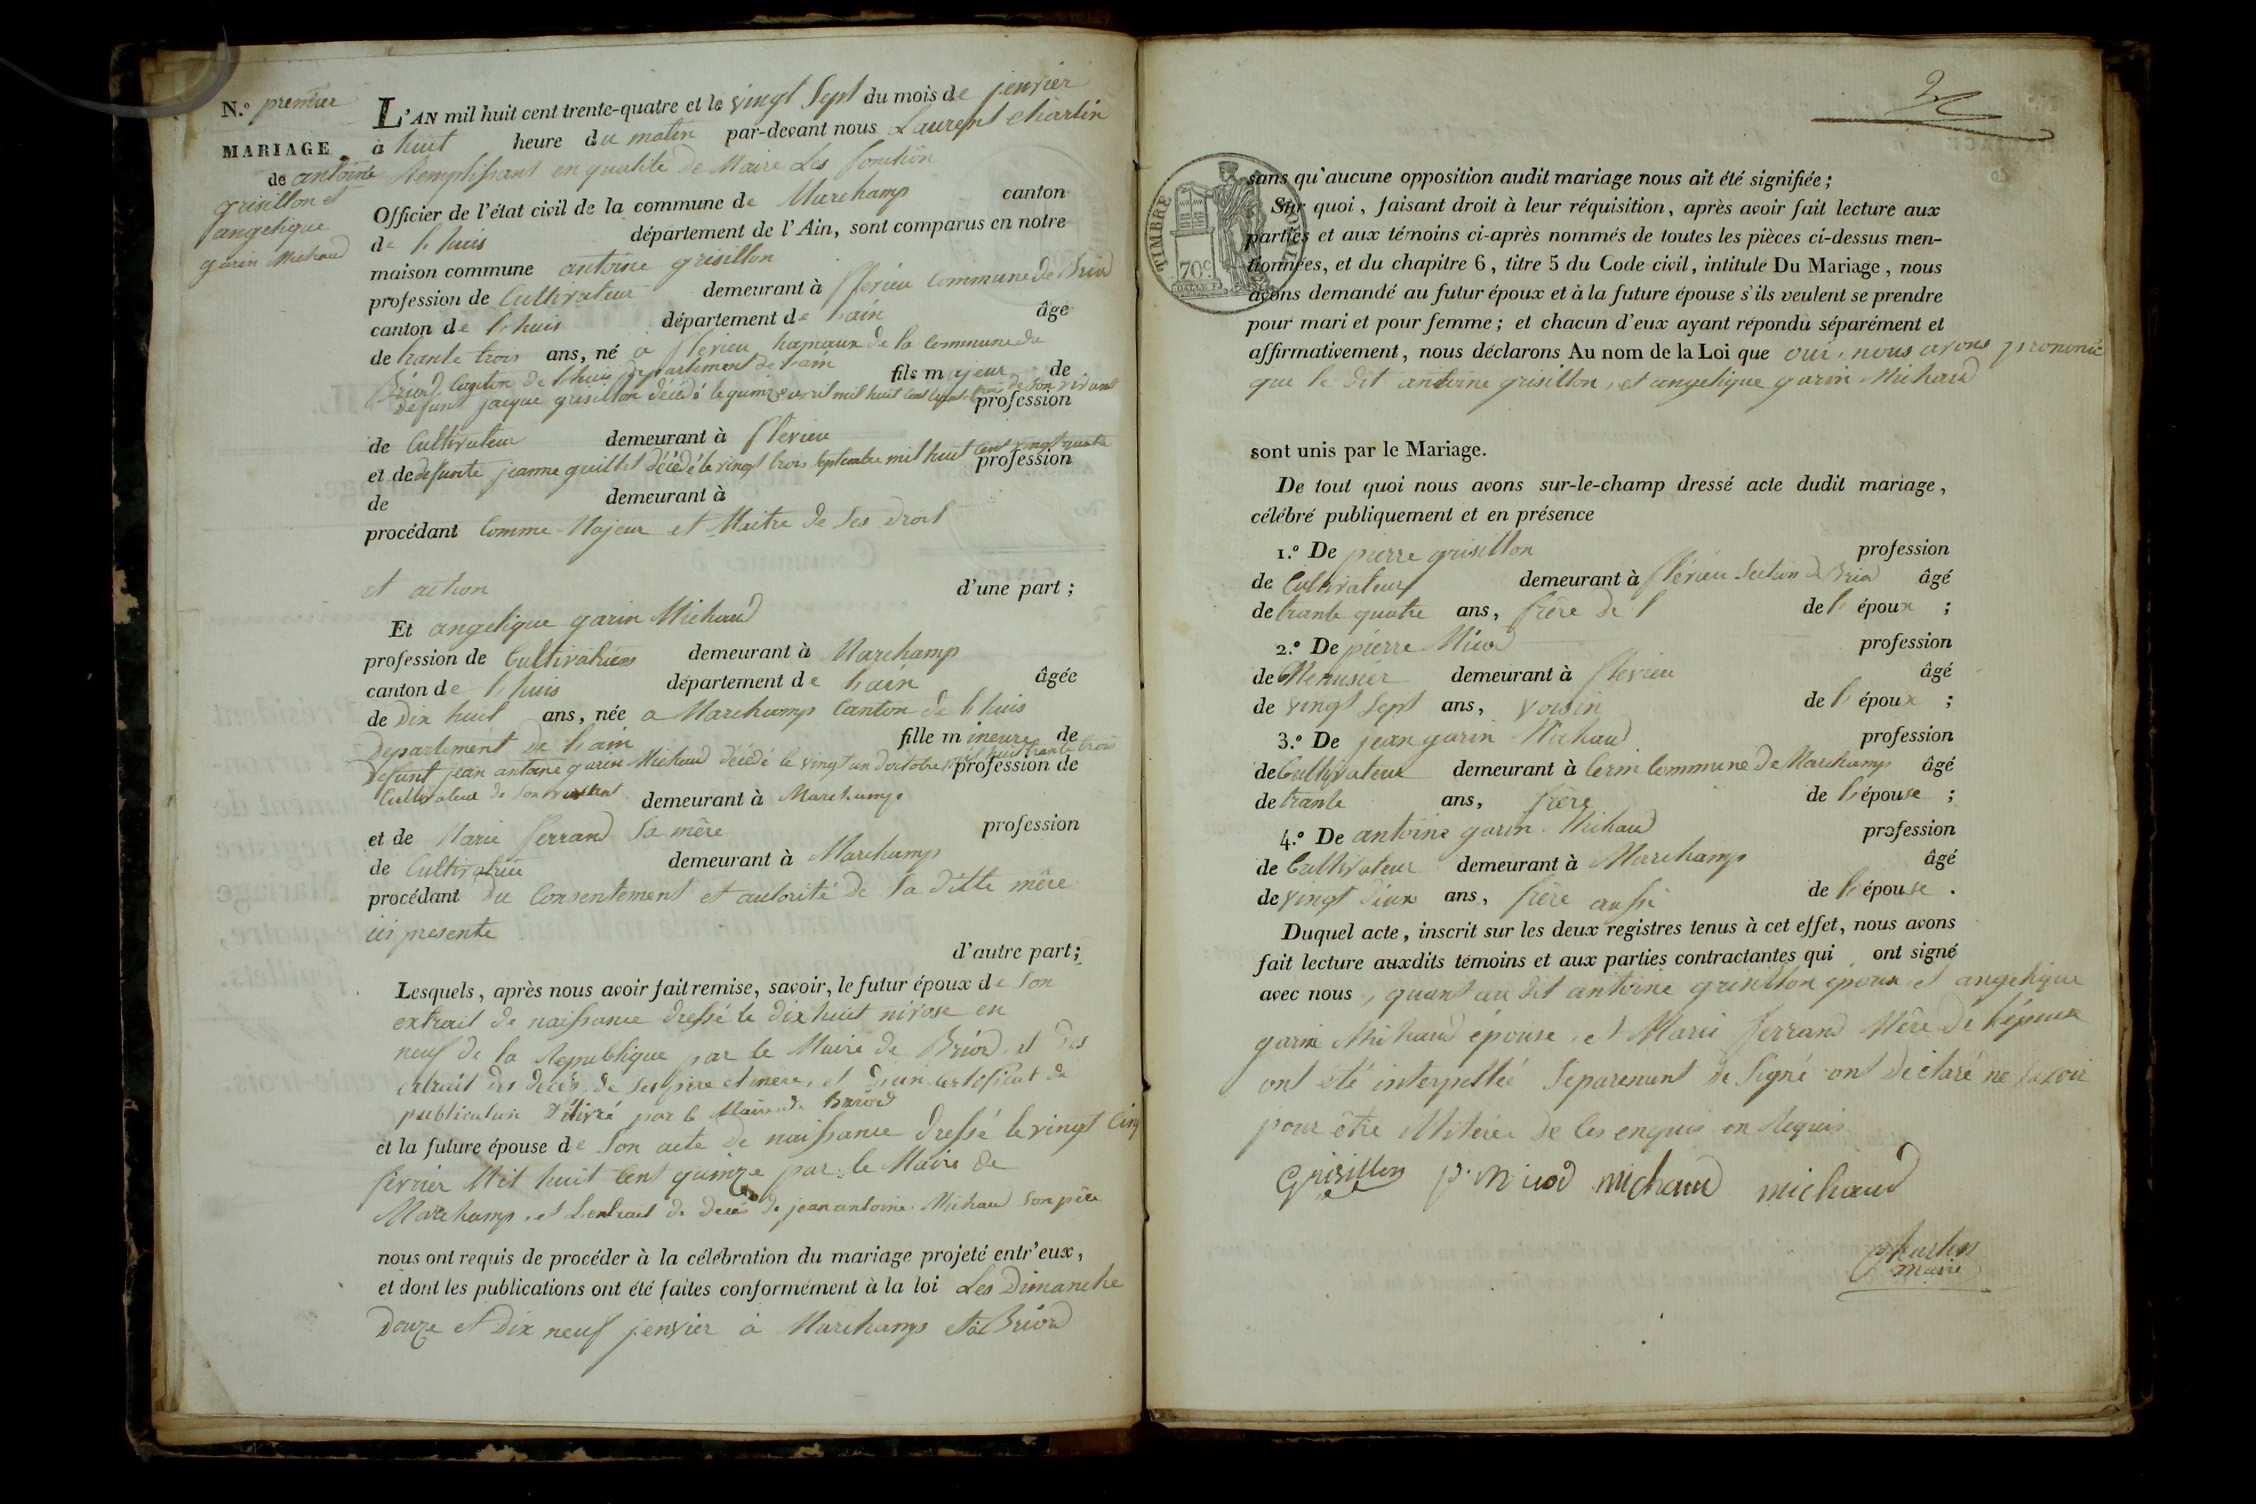 N.º premier
MARIAGE
de antoine
grisillon et
angelique
garin Michaud
L'AN mil huit cent trente-quatre et le vingt Sept du mois de jenvier
à huit heure du matin par-devant nous Laurent Charlin
Remplissant en qualité de Maire Les fonction
Officier de l'état civil de la commune de Marchamp canton
de lhuis département de l'Ain, sont comparus en notre
maison commune antoine grisillon
profession de Cultivateur demeurant à flevieu Commune de Briord
canton de lhuis département de lain âgé
de trante trois ans, né a flevieu hamaux de la Commune de
Briord Canton de lhuis departement de lain fils majeur de
defunt jacque grisillon décédé le quinze avril mil huit Cent de son vivant profession
de Cultivateur demeurant à flevieu
et de defunte jeanne quillet décédé le vingt trois Septembre mil huit Cent vingt quatre profession
de demeurant à
procédant Comme Majeur et Maitre de Ses droit
et action d'une part ;
Et angelique garin Michaud
profession de Cultivatrice demeurant à Marchamp
canton de lhuis département de lain âgée
de Dix huit ans, née a Marchamp Canton de lhuis
Departement de lain fille mineure de
Defunt jean antoine garin Michaud décédé le vingt un doctobre mil huit trante trois profession de
Cultivateur de Son vivant demeurant à Marchamp
et de Marie ferrand Sa mère profession
de Cultivatrice demeurant à Marchamp
procédant du Consentement et autorité de Sa ditte mère
ici presente
d'autre part ;
Lesquels, après nous avoir fait remise, savoir, le futur époux de Son
extrait de naissance dressé le dix huit nivose en
neuf de la Republique par le Maire de Briord, et des
extrait des décès de Ses père et mère, et d'un Certificat de
publication Délivré par le Maire de Briord
et la future épouse de Son acte de naissance dressé le vingt Cinq
fevrier Mil huit Cent quinze par le Maire de
Marchamp, et Lextrait de decès de jean antoine Michaud Son père
nous ont requis de procéder à la célébration du mariage projeté entr'eux,
et dont les publications ont été faites conformément à la loi Les Dimanche
Douze et Dix neuf jenvier à Marchamp et a Briord
2
TIMBRE ROYAL
70c
sans qu'aucune opposition audit mariage nous ait été signifiée ;
Sur quoi, faisant droit à leur réquisition, après avoir fait lecture aux
parties et aux témoins ci-après nommés de toutes les pièces ci-dessus men-
tionnées, et du chapitre 6, titre 5 du Code civil, intitulé Du Mariage, nous
avons demandé au futur époux et à la future épouse s'ils veulent se prendre
pour mari et pour femme ; et chacun d'eux ayant répondu séparément et
affirmativement, nous déclarons Au nom de la Loi que oui, nous avons prononcé
que le dit antoine grisillon, et angelique garin Michaud
sont unis par le Mariage.
De tout quoi nous avons sur-le-champ dressé acte dudit mariage,
célébré publiquement et en présence
1.º De pierre grisillon profession
de Cultivateur demeurant à flévieu Section de Briord âgé
de trante quatre ans, frère de l de l époux ;
2.º De pierre Micod profession
de Menusier demeurant à flevieu âgé
de vingt Sept ans, voisin de l époux ;
3.º De jean garin Michaud profession
de Cultivateur demeurant à Cerin Commune de Marchamp âgé
de trante ans, frère de l épouse ;
4.º De antoine garin Michaud profession
de Cultivateur demeurant à Marchamp âgé
de vingt deux ans, frère aussi de l épouse .
Duquel acte, inscrit sur les deux registres tenus à cet effet, nous avons
fait lecture auxdits témoins et aux parties contractantes qui ont signé
avec nous, quant au dit antoine grisillon époux et angelique
garin Michaud épouse, et Marie ferrand Mère de l'épouse
ont été interpellé Séparement de Signé ont declaré ne Savoir
pour être de Ces enquis en Requis
Grisillon P. Micod michaud michaud
Charlin
maire